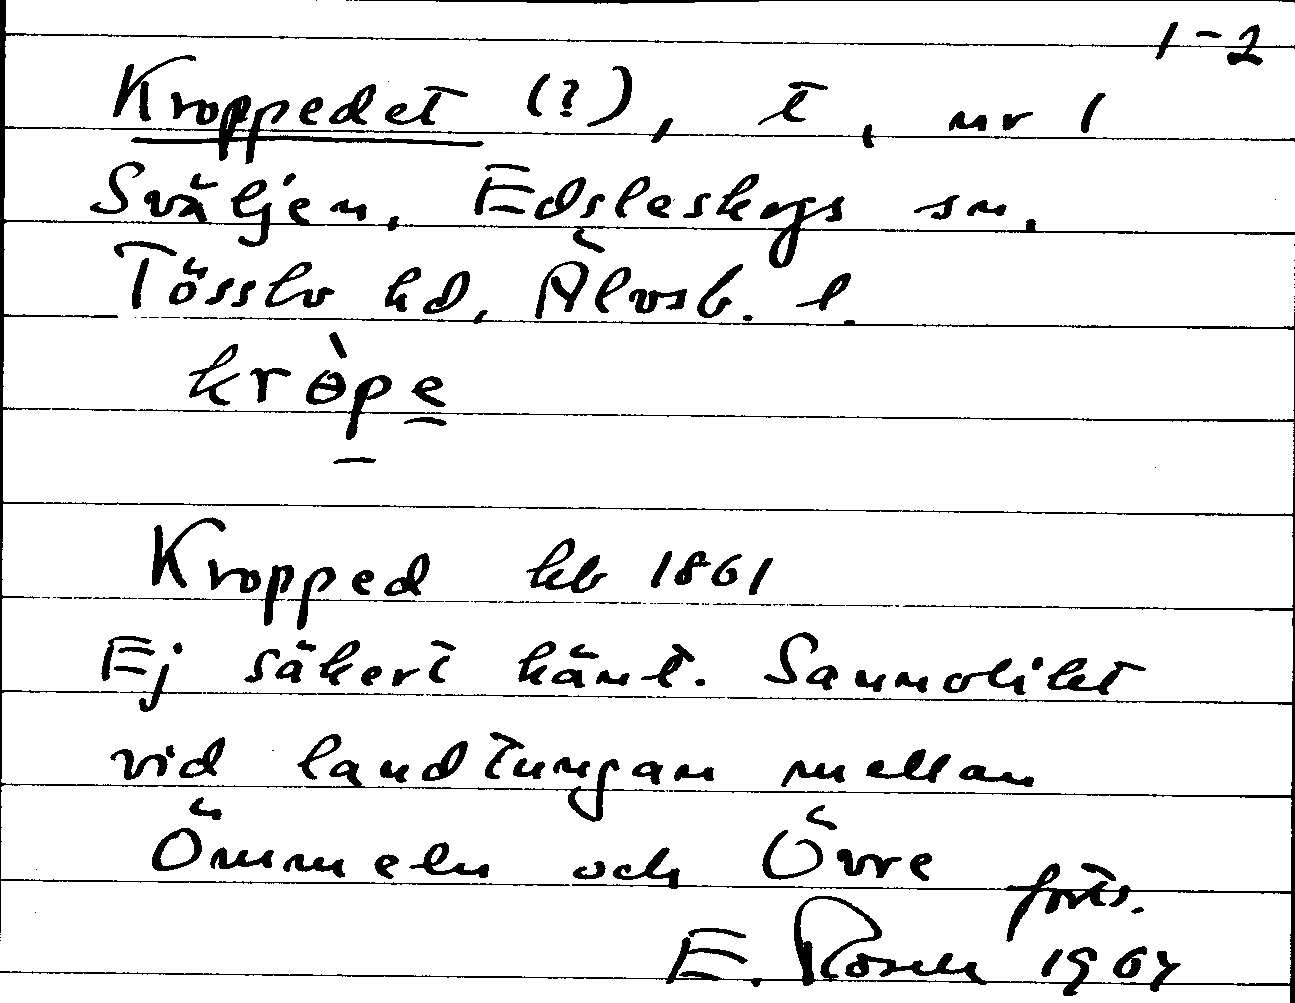 1-2
Kroppedet (?), t, nr 1
Sväljen, Edsleskogs sn,
Tösslv hd, Älvsb. l.
kròpe
Kropped kb 1861
Ej säkert känt. Sannolikt
vid landtungan mellan
Ömmeln och Övre
forts.
E. Rosell 1964